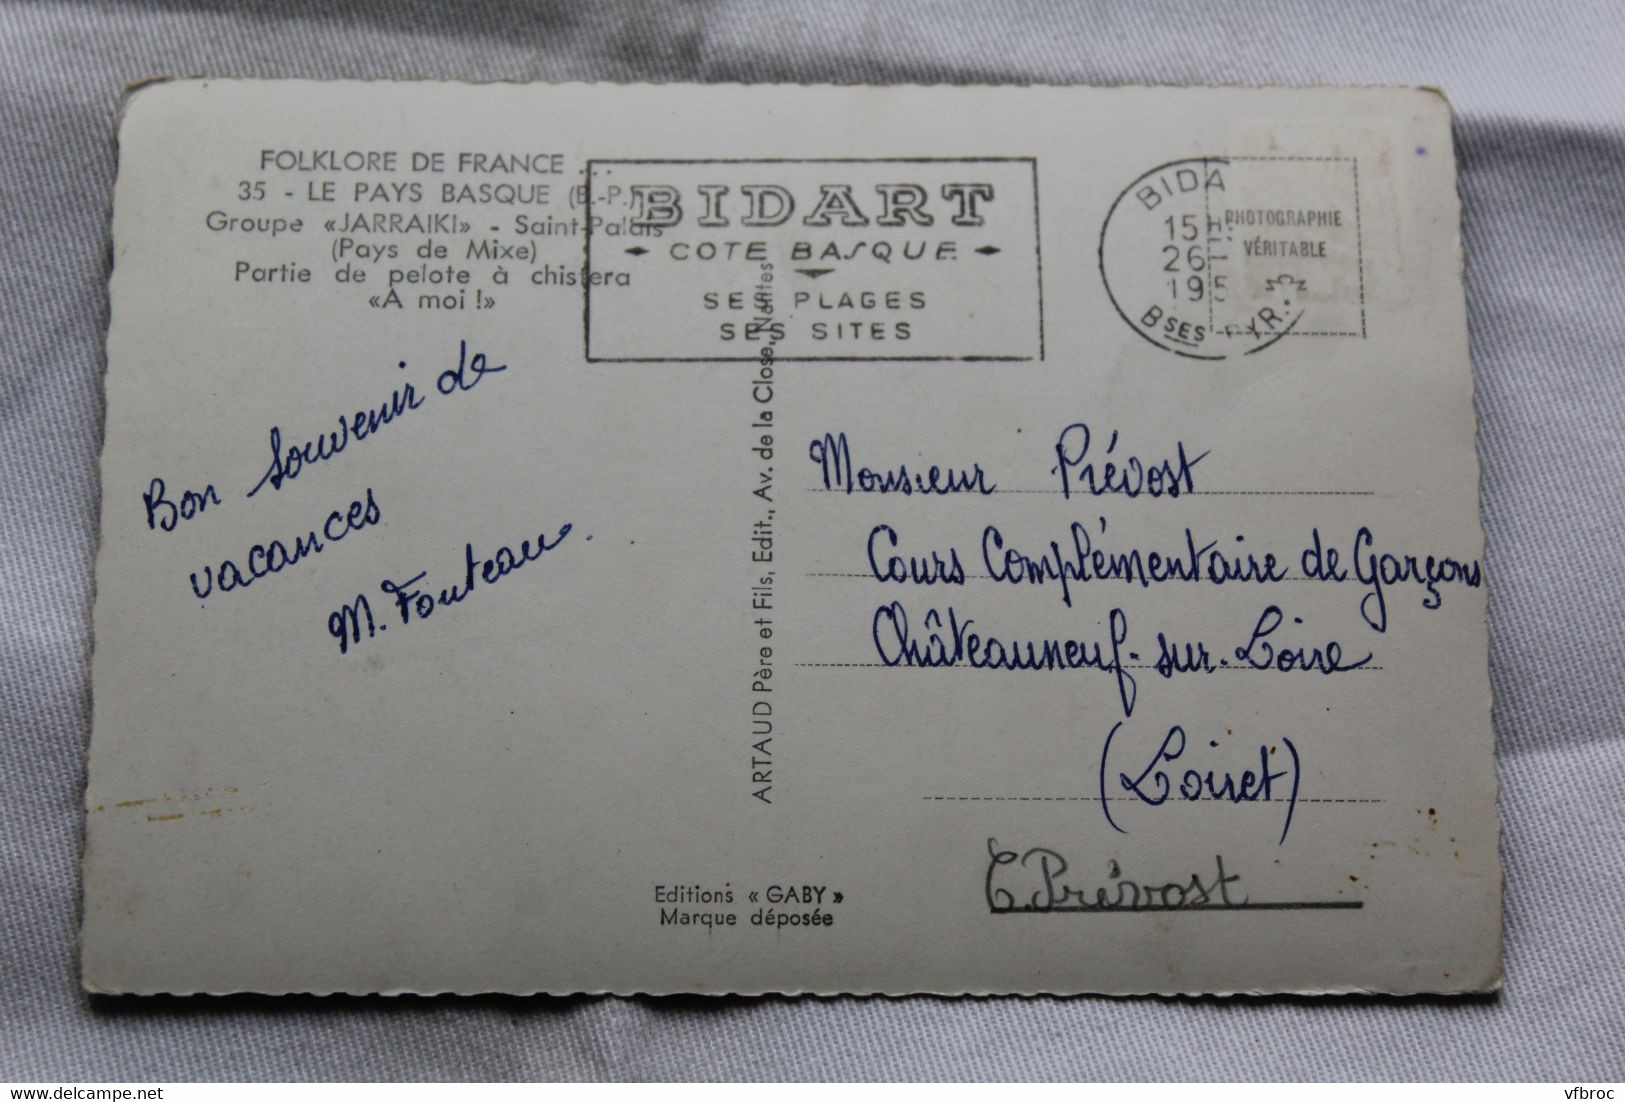 FOLKLORE DE FRANCE ...
35 - LE PAYS BASQUE (B.-P.)
Groupe «JARRAIKI» - Saint-Palais
(Pays de Mixe)
Partie de pelote à chistera
«A moi !»
BIDART
COTE BASQUE
SES PLAGES
SES SITES
BIDA
15H
26
195
BSES PYR.
PHOTOGRAPHIE
VÉRITABLE
Bon souvenir de
vacances
M. Fouteau.
ARTAUD Père et Fils, Edit., Av. de la Close, Nantes
Monsieur Prévost
Cours Complémentaire de Garçons
Châteauneuf-sur-Loire
(Loiret)
Prévost
Editions « GABY »
Marque déposée
vfbroc